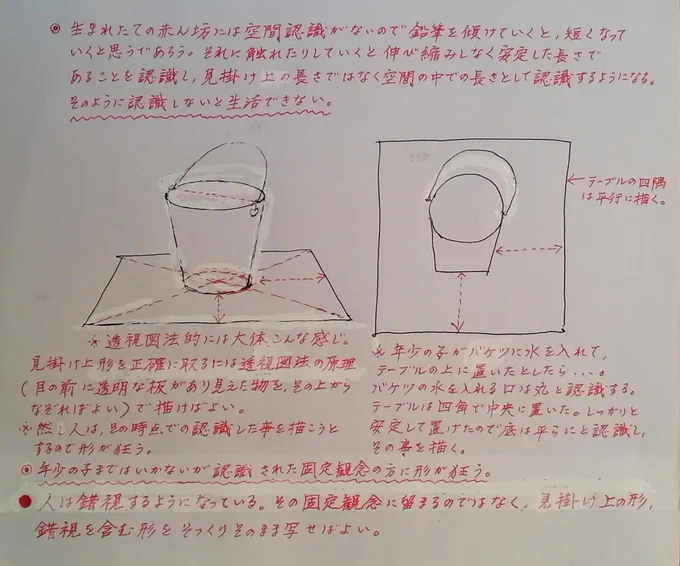 ◉ 生まれたての赤ん坊には空間認識がないので鉛筆を傾けていくと、短くなって
いくと思うであろう。それに触れたりしていくと伸び縮みしなく安定した長さで
あることを認識し、見掛け上の長さではなく空間の中での長さとして認識するようになる。
そのように認識しないと生活できない。
←テーブルの四隅
は平行に描く。
※透視図法的には大体こんな感じ。
見掛け上形を正確に取るには透視図法の原理
(目の前に透明な板があり見えた物を、その上から
なぞればよい)で描けばよい。
※然し人は、その時点での認識した事を描こうと
するので形が狂う。
※年少の子がバケツに水を入れて、
テーブルの上に置いたとしたら・・・。
バケツの水を入れる口は丸と認識する。
テーブルは四角で中央に置いた。しっかりと
安定して置けたので底は平らにと認識し、
その事を描く。
◉年少の子まではいかないが認識された固定観念の方に形が狂う。
●人は錯視するようになっている。その固定観念に留まるのではなく、見掛け上の形、
錯視を含む形をそっくりそのまま写せばよい。